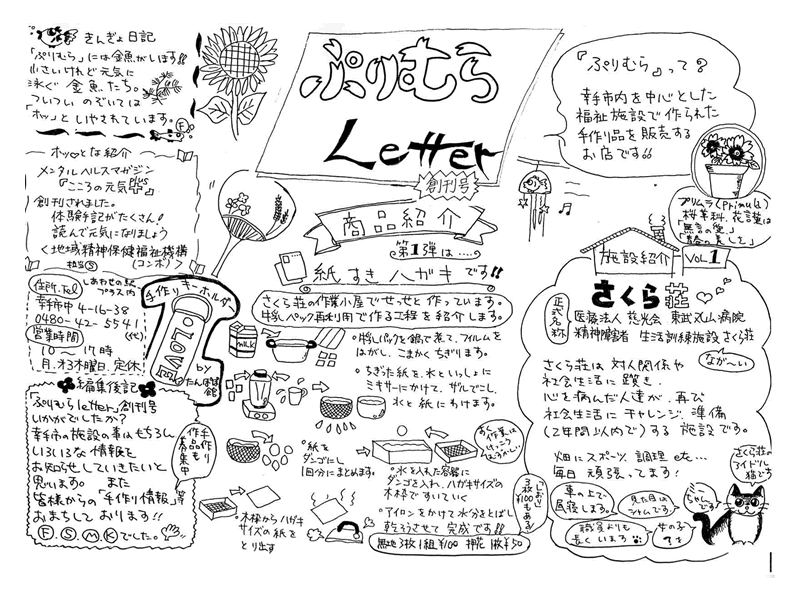 きんぎょ日記
「ぷりむら」には金魚がいます!!
小さいけれど元気に
泳ぐ金魚たち。
ついついのぞいては
「ホッ」といやされています。
F
ぷりむら
Letter
創刊号
『ぷりむら』って？
幸手市内を中心とした
福祉施設で作られた
手作り品を販売する
お店です!!
プリムラ(Primula)
桜草科。花言葉は
「無言の愛」
「青春の美しさ」
ホッとな紹介
メンタルヘルスマガジン
『こころの元気plus+』
創刊されました。
体験手記がたくさん!
読んで元気になりましょう
<地域精神保健福祉機構
担当S
(コンボ)>
住所・Tel
しあわせの駅
プラス内
幸手市中4-16-38
0480-42-5541
(代)
営業時間
10〜17時
月・オ3木曜日、定休
手作りキーホルダー
LOVE
by
たんぽぽ館
商品紹介
第1弾は....
紙すきハガキです!!
さくら荘の作業小屋でせっせと作っています。
牛乳パック再利用で作る工程を紹介します。
milk
・牛乳パックを鍋で煮て、フィルムを
はがし、こまかくちぎります。
・ちぎた紙を、水といっしょに
ミキサーにかけて、ザルでこし、
水と紙にわけます。
・紙を
ダンゴにし
1回分にまとめます。
・水を入れた容器に
ダンゴを入れ、ハガキサイズの
木枠ですいていく
・木枠からハガキ
サイズの紙を
とり出す
・アイロンをかけて水分をとばし
乾そうさせて完成です!!
無地3枚1組¥100 押花1枚¥50
3枚¥100もある!
施設紹介
VOL.1
さくら荘
正式名称
医療法人 慈光会 東武丸山病院
精神障害者 生活訓練施設 さくら荘
なが〜い
さくら荘は対人関係や
社会生活に躓き、
心を病んだ人達が、再び
社会生活にチャレンジ、準備
(2年間以内で)する施設です。
畑にスポーツ、調理 etc...
毎日頑張ってます!
さくら荘の
アイドル猫
です
ミーちゃん
です
車の上で
昼寝します。
見た目は
シャムです。
職員よりも
長くいます
女の子
です
編集後記
「ぷりむらletter」創刊号
いかがでしたか?
幸手市の施設の事はもちろん
いろいろな情報を
お知らせしていきたいと
思います。また
皆様からの「手作り情報」等
おまちしております!!
F.S.M.Kでした。
手作り品も
募集中
1